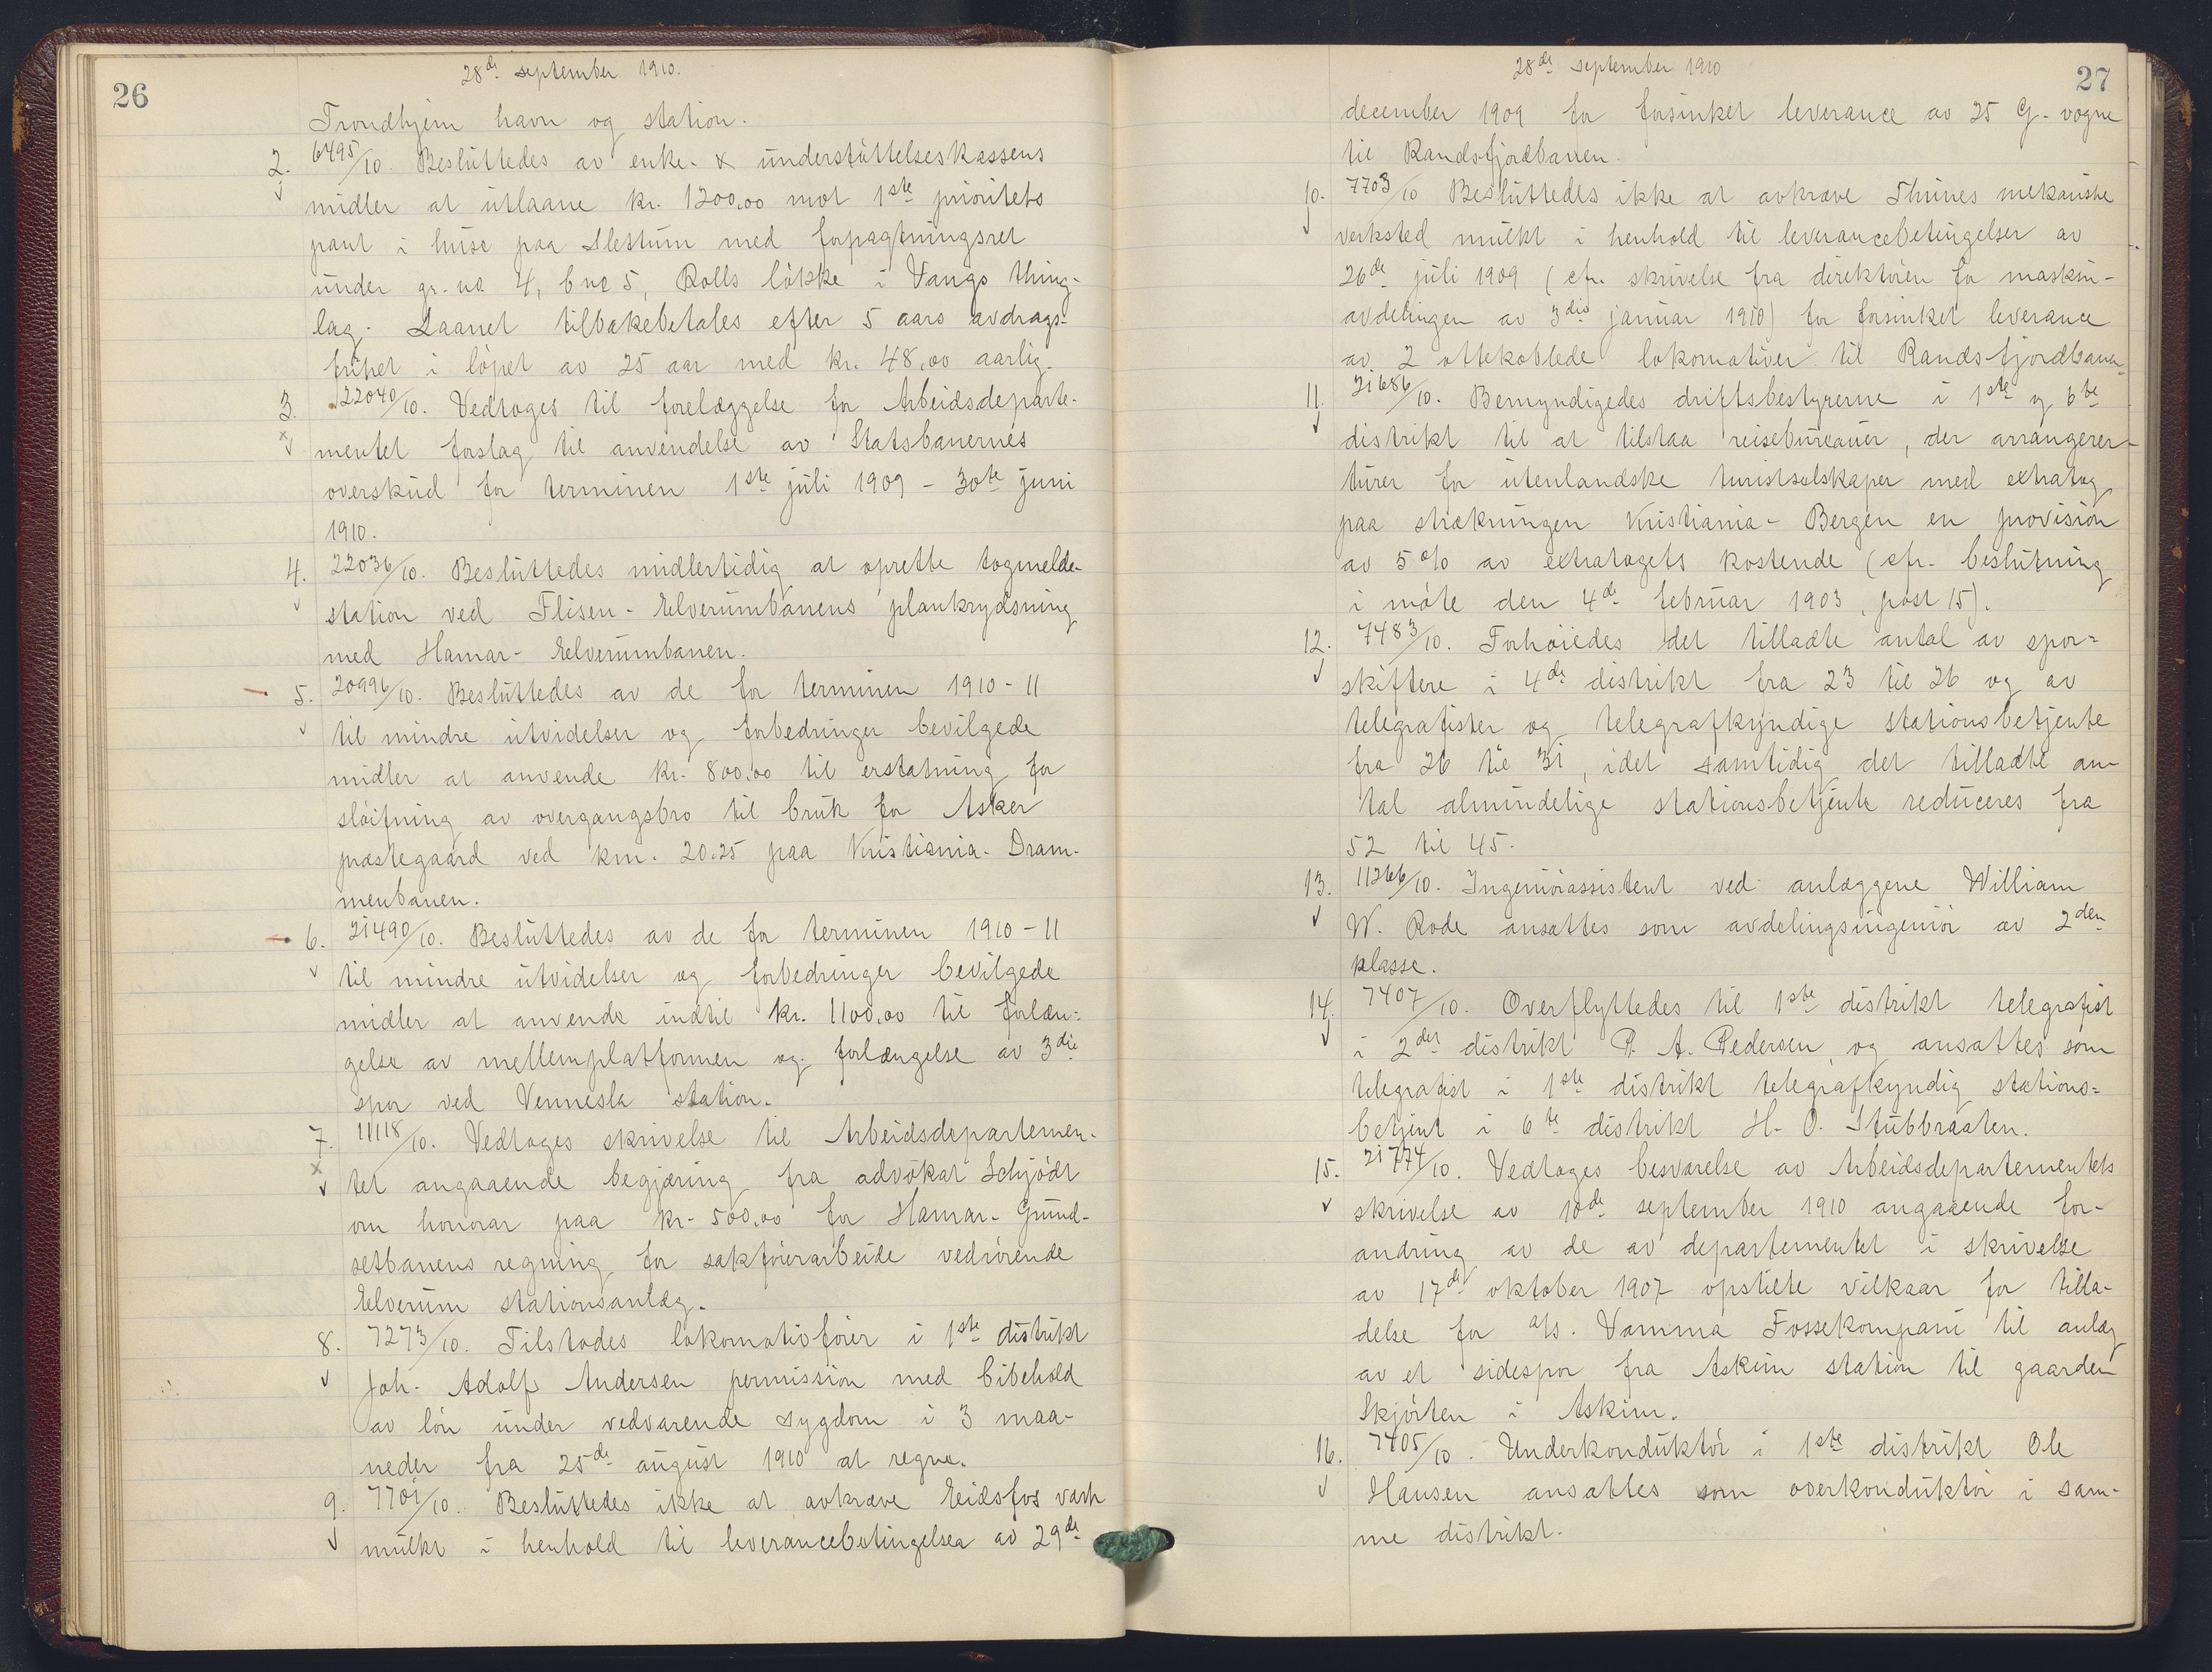 26
28de september 1910.
Trondhjem havn og station.
2. 6495/10. Besluttedes av enke- & understøttelseskassens
midler at utlaane kr. 1200,00 mot 1ste prioritets
pant i huse paa Slettum med forpagtningsret
under gr. no 4, b no 5, Rolls løkke i Vangs thing-
lag. Laanet tilbakebetales efter 5 aars avdrags-
frihet i løpet av 25 aar med kr. 48,00 aarlig.
3. 22040/10. Vedtoges til forelæggelse for Arbeidsdeparte-
mentet forslag til anvendelse av Statsbanernes
overskud for terminen 1ste juli 1909 - 30te juni
1910.
4. 22036/10. Besluttedes midlertidig at oprette togmelde-
station ved Flisen-Elverumbanens plankrydsning
med Hamar-Elverumbanen.
5. 20996/10. Besluttedes av de for terminen 1910-11
til mindre utvidelser og forbedringer bevilgede
midler at anvende kr. 800,00 til erstatning for
sløifning av overgangsbro til bruk for Asker
præstegaard ved km. 20.25 paa Kristiania-Dram-
menbanen.
6. 21490/10. Besluttedes av de for terminen 1910-11
til mindre utvidelser og forbedringer bevilgede
midler at anvende indtil kr. 1100,00 til forlæn-
gelse av mellemplatformen og forlængelse av 3die
spor ved Vennesla station.
7. 11118/10. Vedtoges skrivelse til Arbeidsdepartemen-
tet angaaende begjæring fra advokat Schjødt
om honorar paa kr. 500,00 for Hamar-Grund-
setbanens regning for sakførerarbeide vedrørende
Elverum stationsanlæg.
8. 7273/10. Tilstodes lokomotivfører i 1ste distrikt
Joh. Adolf Andersen permission med bibehold
av løn under vedvarende sygdom i 3 maa-
neder fra 25de august 1910 at regne.
9. 7701/10. Besluttedes ikke at avkræve Eidsfos værk
mulkt i henhold til leverancebetingelser av 29de
27
28de september 1910
december 1909 for forsinket leverance av 25 G-vogne
til Randsfjordbanen.
10. 7703/10 Besluttedes ikke at avkræve Thunes mekaniske
verksted mulkt i henhold til leverancebetingelser av
26de juli 1909 (cfr. skrivelse fra direktøren for maskin-
avdelingen av 3die januar 1910) for forsinket leverance
av 2 ottekoblede lokomotiver til Randsfjordbanen.
11. 21686/10. Bemyndigedes driftsbestyrerne i 1ste og 6te
distrikt til at tilstaa reisebureauer, der arrangerer
turer for utenlandske turistselskaper med extratog
paa strækningen Kristiania-Bergen en provision
av 5 % av extratogets kostende (cfr. beslutning
i møte den 4de februar 1903, post 15).
12. 7483/10. Forhøiedes det tilladte antal av spor-
skiftere i 4de distrikt fra 23 til 26 og av
telegrafister og telegrafkyndige stationsbetjente
fra 26 til 31, idet samtidig det tilladte an-
tal almindelige stationsbetjente reduceres fra
52 til 45.
13. 11266/10. Ingeniørassistent ved anlæggene William
W. Rode ansattes som avdelingsingeniør av 2den
klasse.
14. 7407/10. Overflyttedes til 1ste distrikt telegrafist
i 2det distrikt P. A. Pedersen og ansattes som
telegrafist i 1ste distrikt telegrafkyndig stations-
betjent i 6te distrikt H. O. Stubbraaten.
15. 21774/10. Vedtoges besvarelse av Arbeidsdepartementets
skrivelse av 10de september 1910 angaaende for-
andring av de av departementet i skrivelse
av 17de oktober 1907 opstilte vilkaar for tilla-
delse for a/s. Vamma Fossekompani til anlæg
av et sidespor fra Askim station til gaarden
Skjørten i Askim.
16. 7405/10. Underkonduktør i 1ste distrikt Ole
Hansen ansattes som overkonduktør i sam-
me distrikt.